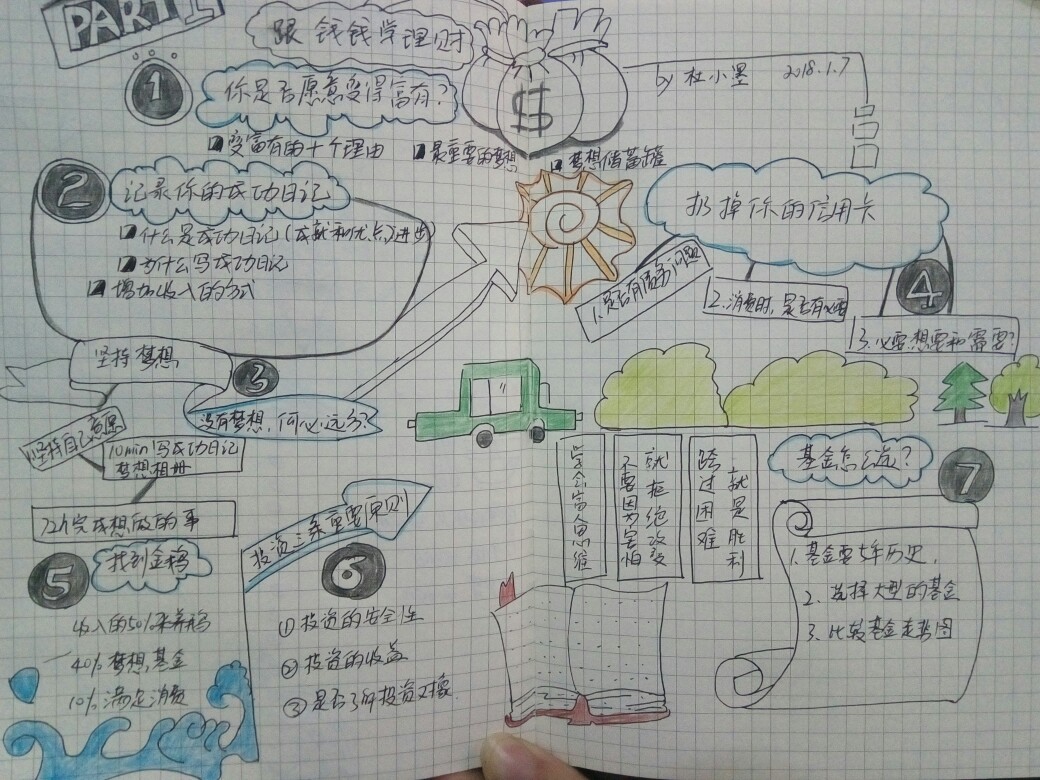 PART 1
跟钱钱学理财
by 杜小墨 2018.1.7
1
你是否愿意变得富有?
变富有的十个理由
最重要的梦想
梦想储蓄罐
2
记录你的成功日记
什么是成功日记(成就和优点)进步
为什么写成功日记
增加收入的方式
坚持梦想
3
没有梦想,何必远方?
坚持自己
10min写成功日记
梦想相册
72h完成想做的事
扔掉你的信用卡
4
1.是否有债务问题
2.消费时,是否有必要
3.必要.想要和需要?
5
找到金鸡
收入的50%来养鸡
40%梦想基金
10%满足消费
投资三条重要原则
6
①投资的安全性
②投资的收益
③是否了解投资对象
学会富人思维
不要因为害怕
就拒绝改变
跨过困难
就是胜利
基金怎么选?
7
1.基金要5年历史.
2.选择大型的基金
3.比较基金走势图